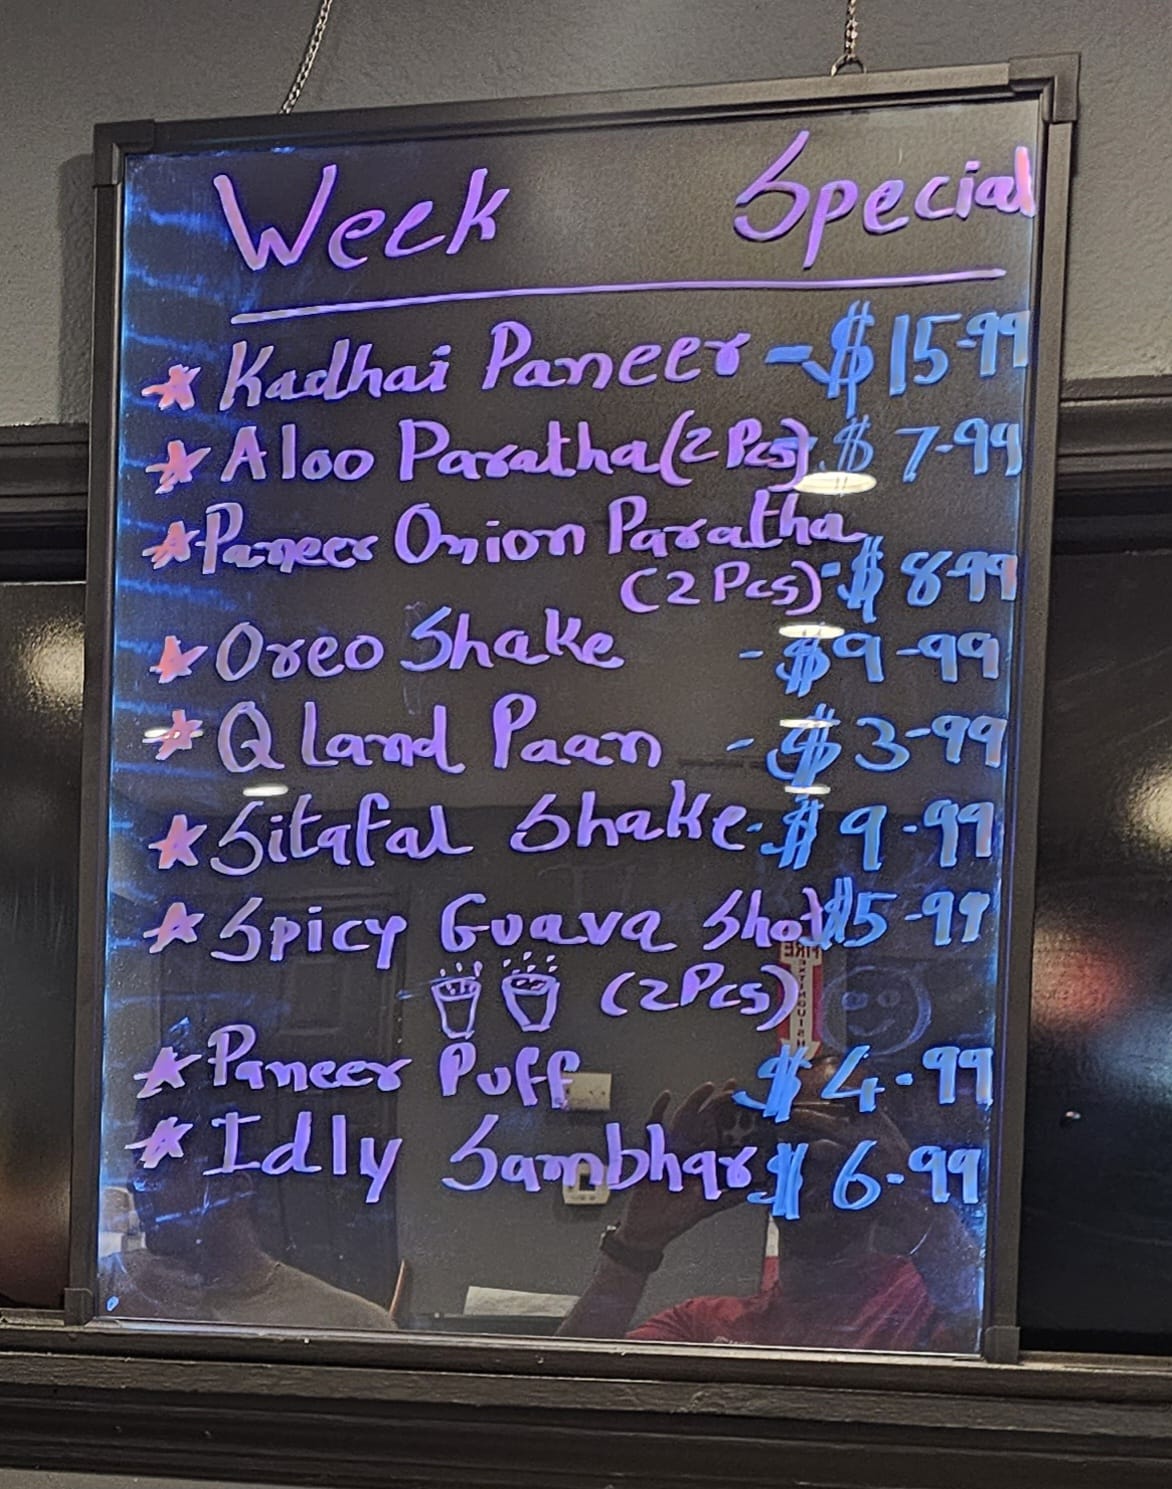 Week Special
☆ Kadhai Paneer - $ 15-99
☆ Aloo Paratha (2 Pcs) $ 7-99
☆ Paneer Onion Paratha
(2 Pcs) - $ 8-99
☆ Oreo Shake - $ 9-99
☆ Q Land Paan - $ 3-99
☆ Sitafal Shake - $ 9-99
☆ Spicy Guava Shot $5-99
(2Pcs)
☆ Paneer Puff $ 4.99
☆ Idly Sambhar $ 6-99
FIRE